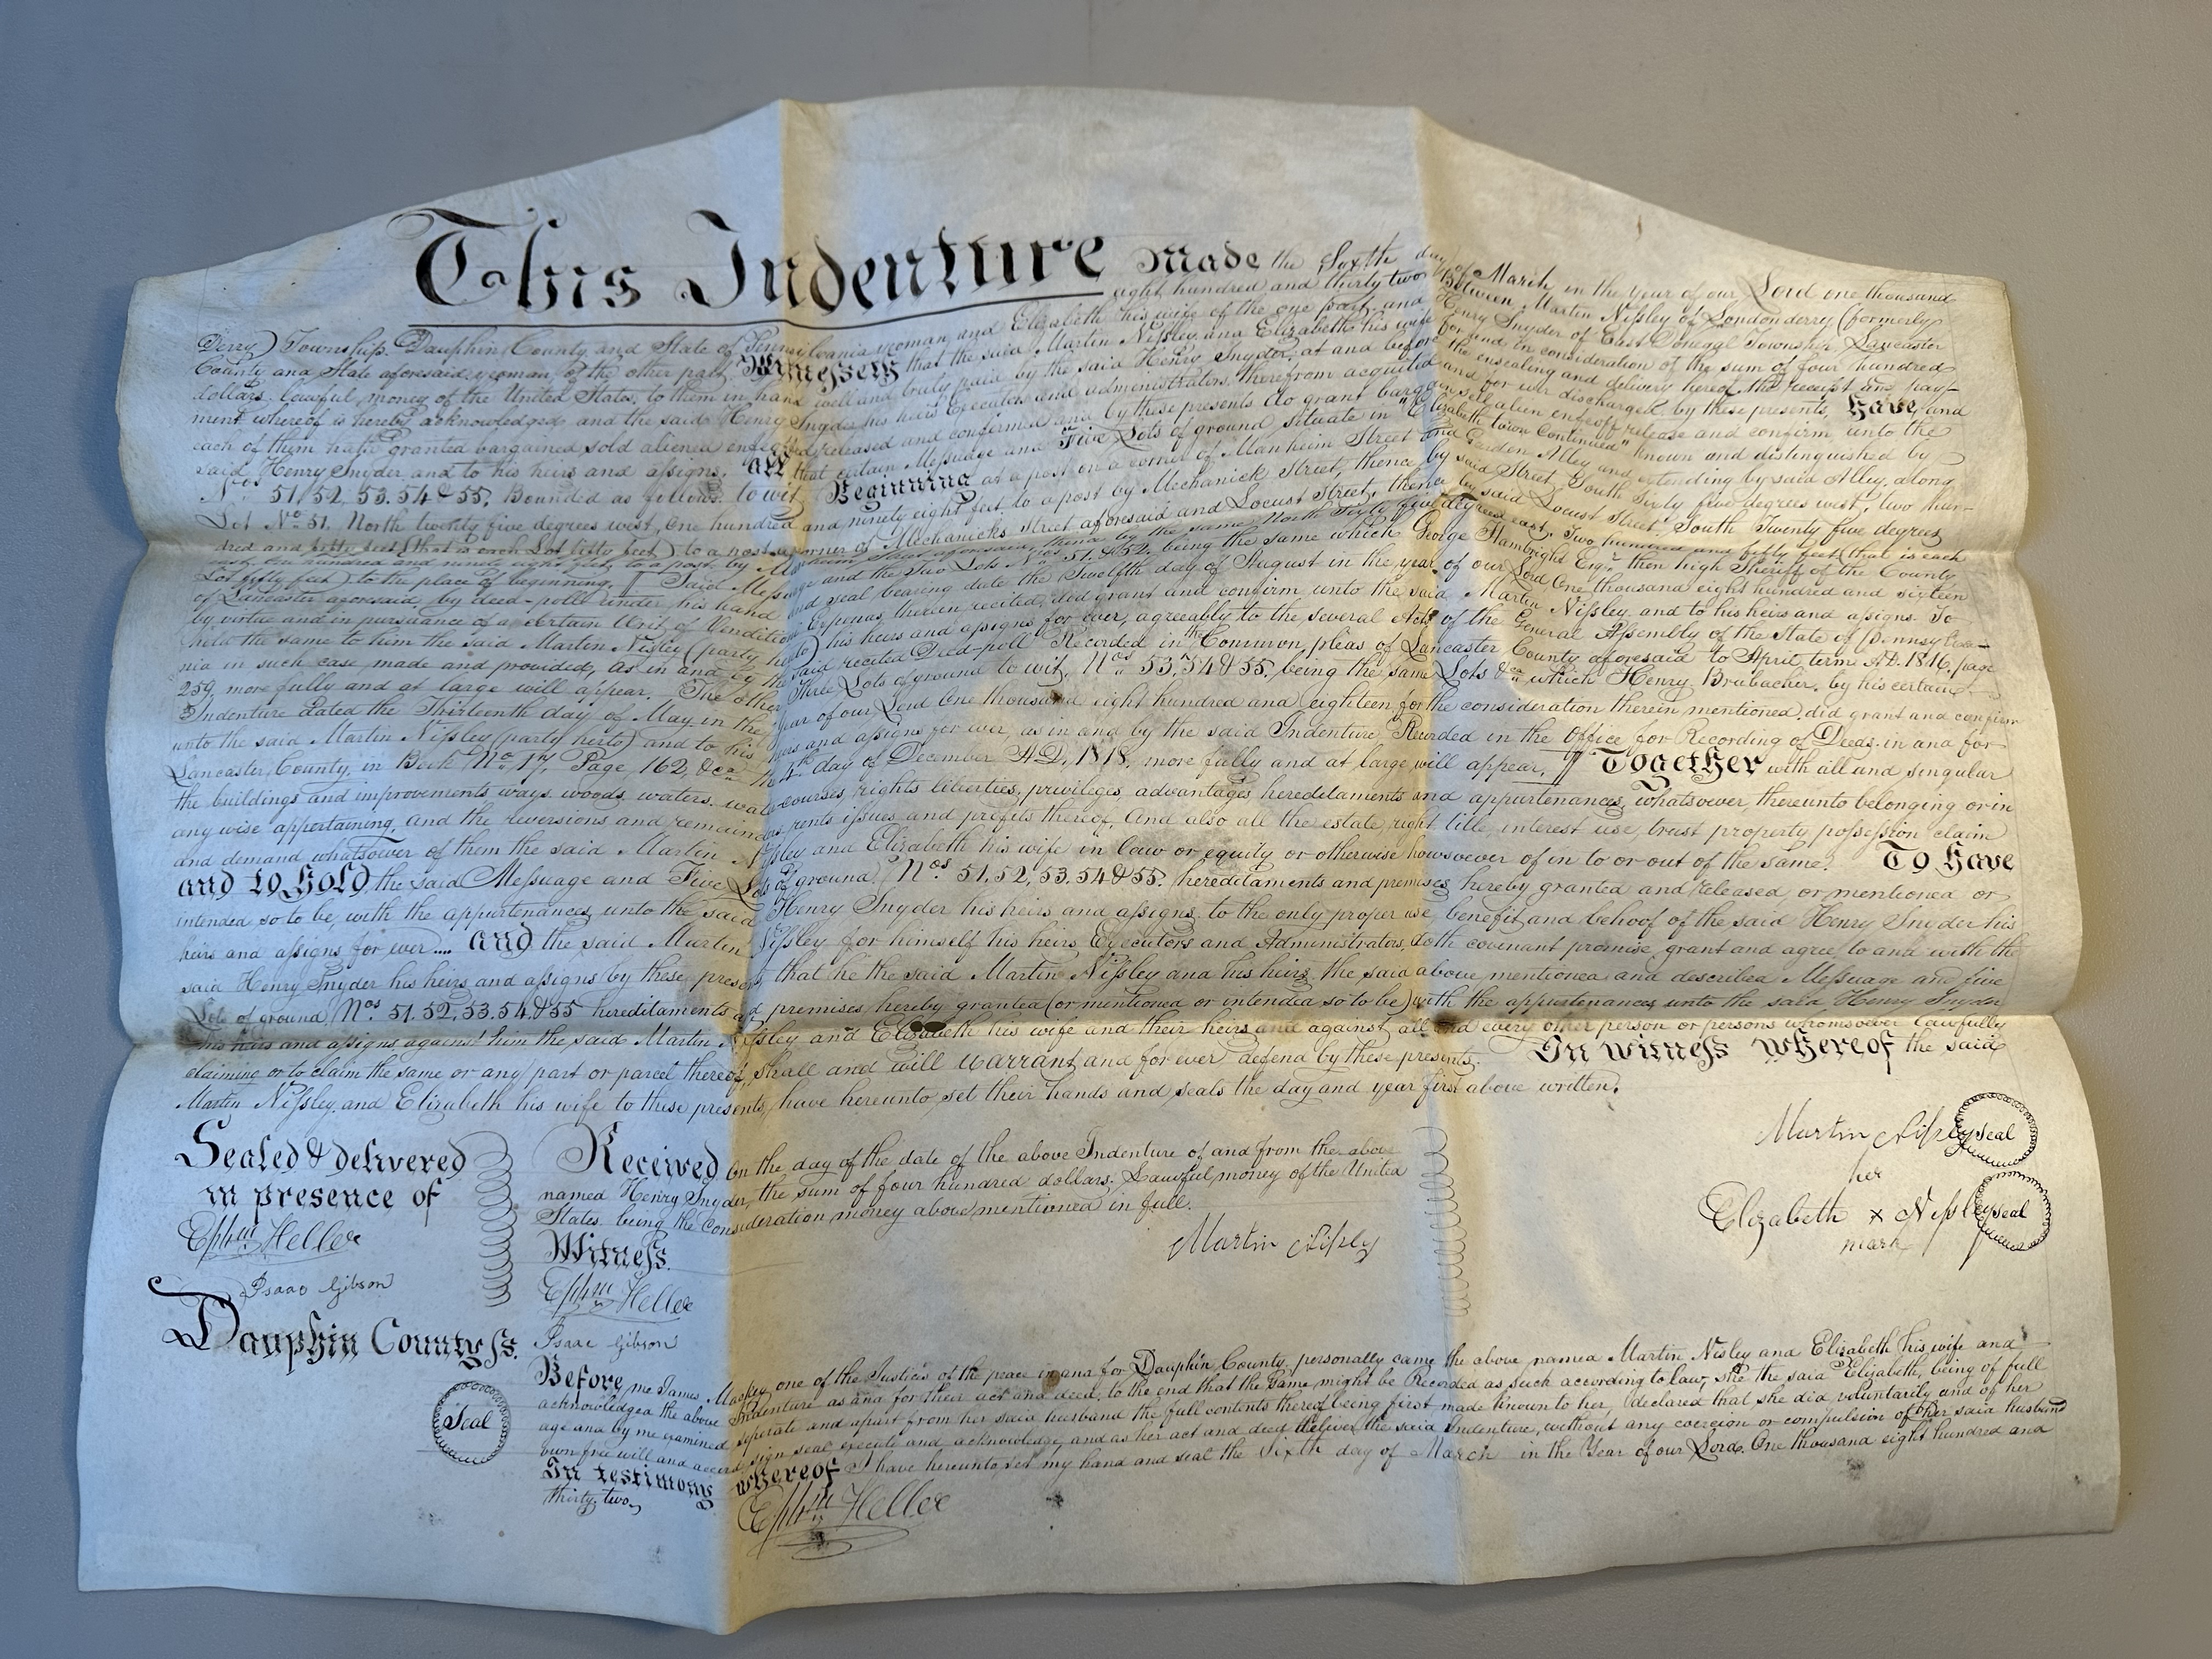 This Indenture Made the Sixth day of March in the year of our Lord one thousand
eight hundred and thirty two Between Martin Nissley of Londonderry (formerly
Derry) Township Dauphin County and State of Pennsylvania yeoman and Elizabeth his wife of the one part, and Henry Snyder of East Donegal Township Lancaster
County and State aforesaid yeoman of the other part Witnesseth that the said Martin Nissley and Elizabeth his wife for and in consideration of the sum of four hundred
dollars lawful money of the United States, to them in hand well and truly paid by the said Henry Snyder, at and before the ensealing and delivery hereof, the receipt and pay-
ment whereof is hereby acknowledged and the said Henry Snyder his heirs Executors and administrators therefrom acquited and for ever discharged by these presents, Have, and
each of them hath granted bargained sold aliened enfeoffed released and confirmed and by these presents do grant bargain sell alien enfeoff release and confirm unto the
said Henry Snyder and to his heirs and assigns, All that certain Messuage and Five Lots of ground situate in "Elizabeth town Continued" known and distinguished by
Nos 51, 52, 53. 54 & 55, Bounded as follows. to wit Beginning at a post on a corner of Manheim Street and Garden Alley and extending by said Alley, along
Lot No 51, North twenty five degrees west, one hundred and ninety eight feet to a post by Mechanick Street, thence by said Street, South Sixty five degrees west, two hun-
dred and fifty feet (that is each Lot fifty feet) to a post a corner of Mechanicks street aforesaid and Locust Street, thence by said Locust Street South Twenty five degrees
east, one hundred and ninety eight feet, to a post, by Manheim Street aforesaid, thence by the same North Sixty five degrees east, Two hundred and fifty feet (that is each
Lot fifty feet) to the place of beginning. ¶ Said Messuage and the Two Lots Nos 51. & 52. being the same which George Hambright Esqr. then high Sheriff of the County
of Lancaster aforesaid, by deed-poll under his hand and seal bearing date the Twelfth day of August in the year of our Lord One thousand eight hundred and sixteen
by virtue and in pursuance of a certain Writ of Venditioni Exponas therein recited, did grant and confirm unto the said Martin Nissley and to his heirs and assigns. To
hold the same to him the said Martin Nissley (party hereto) his heirs and assigns for ever, agreeably to the several Acts of the General Assembly of the State of Pennsylva-
nia in such case made and provided, as in and by the said recited Deed-poll Recorded in the Common pleas of Lancaster County aforesaid to April term A.D. 1816, page
259, more fully and at large will appear. The other Three Lots of ground to wit, Nos 53, 54 & 55, being the same Lots &ca which Henry Brubacher, by his certain
Indenture dated the Thirteenth day of May in the year of our Lord One thousand eight hundred and eighteen for the consideration therein mentioned, did grant and confirm
unto the said Martin Nissley (party herto) and to his heirs and assigns for ever, as in and by the said Indenture Recorded in the Office for Recording of Deeds in and for
Lancaster County, in Book No. 17, Page, 162, &ca the 4th day of December A.D, 1818, more fully and at large will appear, ¶ Together with all and singular
the buildings and improvements ways woods waters, water-courses, rights liberties, privileges, advantages hereditaments and appurtenances, whatsoever thereunto belonging or in
any wise appertaining, and the reversions and remainders rents issues and profits thereof, And also all the estate right title, interest use, trust property, possession claim
and demand whatsoever of them the said Martin Nissley and Elizabeth his wife in law or equity or otherwise howsoever of in to or out of the same. To Have
and to Hold the said Messuage and Five Lots of ground (Nos 51, 52, 53. 54 & 55. hereditaments and premises hereby granted and released, or mentioned or
intended so to be, with the appurtenances unto the said Henry Snyder his heirs and assigns to the only proper use, benefit and behoof of the said Henry Snyder his
heirs and assigns for ever.... And the said Martin Nissley for himself his heirs Executors and Administrators, doth covenant promise grant and agree, to and with the
said Henry Snyder his heirs and assigns by these presents, that he the said Martin Nissley and his heirs, the said above mentioned and described Messuage and five
Lots of ground, Nos 51. 52. 53. 54 & 55 hereditaments and premises, hereby granted (or mentioned or intended so to be) with the appurtenances, unto the said Henry Snyder
his heirs and assigns against him the said Martin Nissley and Elizabeth his wife and their heirs and against all and every other person or persons whomsoever lawfully
claiming or to claim the same or any part or parcel thereof, shall and will warrant and for ever defend by these presents. In witness whereof the said
Martin Nissley, and Elizabeth his wife to these presents, have hereunto, set their hands and seals the day and year first above written.
Martin Nissly seal
her
Elizabeth x Nissley seal
mark
Sealed & delivered
in presence of
Ephm Heller
Isaac Gibson
Received on the day of the date of the above Indenture of and from the above
named Henry Snyder, the sum of four hundred dollars, Lawful money of the United
States, being the consideration money above mentioned in full.
Martin Nissly
Witness.
Ephm Heller
Isaac Gibson
Dauphin County Ss.
Seal
Before me James Mackey, one of the Justices of the peace in and for Dauphin County, personally came the above named Martin Nisley and Elizabeth his wife and
acknowledged the above Indenture as and for their act and deed, to the end that the same might be Recorded as such according to law, she the said Elizabeth, being of full
age and by me examined, seperate and apart from her said husband the full contents thereof being first made known to her, declared that she did voluntarily and of her
own free will and accord, sign seal execute and acknowledge and as her act and deed deliver the said Indenture, without any coercion or compulsion of her said husband
In testimony whereof I have hereunto, set my hand and seal the Sixth day of March in the Year of our Lord. One thousand eight hundred and
thirty, two,
Ephm Heller